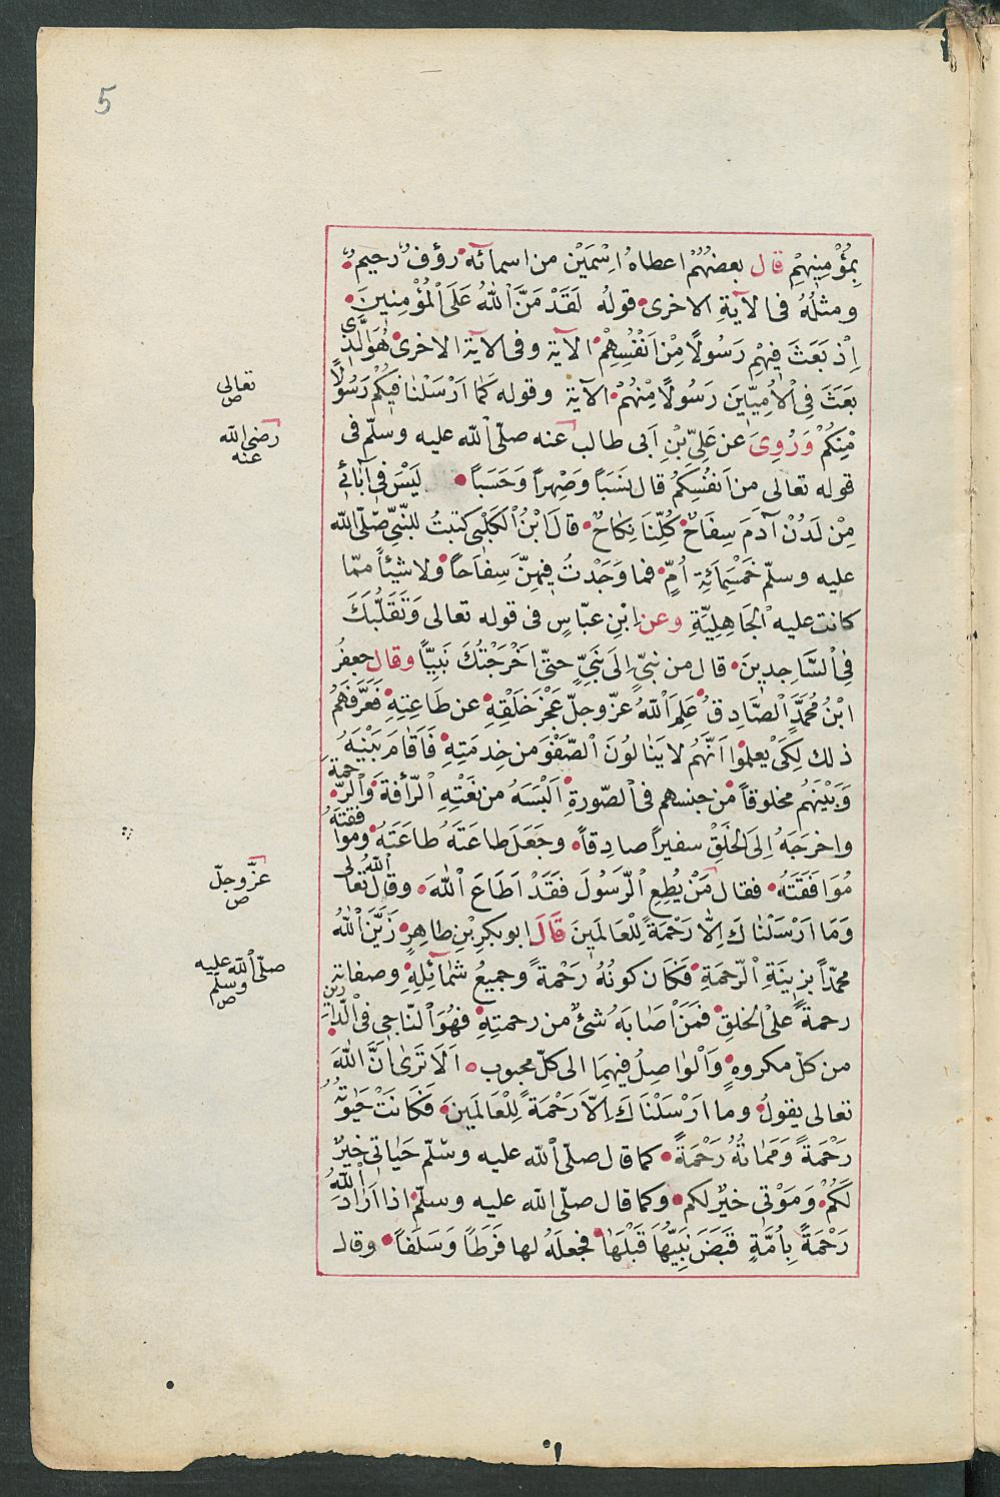 5
بِمُؤْمِنِيهِمْ قال بعضُهُمْ اعطاهُ اسْمَيْنِ من اسمائه رؤفٌ رحيمٌ
ومثلُهُ فى الآيةِ الاخرى قولُهُ لَقَدْ مَنَّ ٱللّٰهُ عَلَى ٱلْمُؤْمِنِينَ
اِذْ بَعَثَ فِيهِمْ رَسُولًا مِنْ اَنْفُسِهِمْ الآيةَ وفى الآيةِ الاخرى هُوَ ٱلَّذِى
بَعَثَ فِى ٱلْاُمِّيِّينَ رَسُولًا مِنْهُمْ الآيةَ وقوله كَمَا اَرْسَلْنَا فِيكُمْ رَسُولًا
مِنْكُمْ وَرُوِىَ عن عَلِىِّ بْنِ اَبى طالب عنه صلّى ٱللّٰه عليه وسلّم فى
قوله تعالى مِنْ اَنْفُسِكُمْ قال نَسَبًا وَصِهْرًا وَحَسَبًا لَيْسَ فى آبَائِى
مِنْ لَدُنْ آدَمَ سِفَاحٌ كُلُّنَا نِكَاحٌ قالَ ابْنُ ٱلْكَلْبِى كتبتُ للنَّبِىِّ صلّى ٱللّٰه
عليه وسلّم خَمْسَمِائَةِ اُمٍّ فما وَجَدْتُ فِيهِنَّ سِفَاحًا ولا شيئًا ممّا
كانت عليه ٱلْجَاهِلِيَّةِ وعن ابْنِ عبّاسٍ فى قوله تعالى وَتَقَلُّبَكَ
فِى ٱلسَّاجِدِينَ قال من نبىٍّ اِلَى نَبِىٍّ حتّى اَخْرَجْتُكَ نَبِيًّا وقال جعفرُ
ابْنُ مُحَمَّدٍ ٱلصَّادِقُ عَلِمَ ٱللّٰهُ عزّ وجلّ عَجْزَ خَلْقِهِ عن طَاعَتِهِ فَعَرَّفَهُمْ
ذلك لِكَىْ يعلمُوا اَنَّهُمْ لا يَنَالُونَ ٱلصَّفْوَ من خِدْمَتِهِ فَاَقَامَ بَيْنَهُ
وَبَيْنَهُم مخلوقًا من جنسهم فى ٱلصّورةِ اَلْبَسَهُ من نَعْتِهِ ٱلرّأفةَ وَٱلرّحمةَ
واخرَجَهُ اِلَى ٱلْخَلْقِ سفيرًا صادِقًا وجَعَلَ طاعَتَهُ طاعَتَهُ وموافقتَهُ
مُوَافَقَتَهُ فقال مَنْ يُطِعِ ٱلرَّسُولَ فَقَدْ اَطَاعَ ٱللّٰهَ وقال ٱللّٰهُ تعالى
وَمَا اَرْسَلْنَاكَ اِلَّا رَحْمَةً لِلْعَالَمِينَ قَالَ ابو بكرِ بْنِ طاهِرٍ زَيَّنَ ٱللّٰهُ
محمّدًا بِزِينَةِ ٱلرّحمَةِ فَكَان كونُهُ رَحْمَةً وجميعُ شمائلِهِ وصفاتِهِ
رحمةً على ٱلخلقِ فَمَنْ اَصَابَهُ شئٌ من رحمتِهِ فهُوَ ٱلنّاجى فى ٱلدّارَيْنِ
من كلّ مكروهٍ وَٱلْوَاصِلُ فِيهِمَا الى كلّ محبوب اَلَا تَرَى اَنَّ ٱللّٰهَ
تعالى يقولُ وما ارْسَلْنَاكَ اِلَّا رَحْمَةً لِلْعَالَمِينَ فَكَانَتْ حَيٰوتُهُ
رَحْمَةً وَمَمَاتُهُ رَحْمَةً كما قال صلّى ٱللّٰه عليه وسلّم حَيَاتى خيرٌ
لَكُمْ وَمَوْتى خيرٌ لكم وكما قال صلّى ٱللّٰه عليه وسلّم اذا اَرَادَ ٱللّٰهُ
رَحْمَةً بِاُمَّةٍ قَبَضَ نَبِيَّهَا قَبْلَهَا فجعلَهُ لها فَرَطًا وَسَلَفًا وقال
تعالى
ص
رضى ٱللّٰه
عنه
عزّ وجلّ
ص
صلّى ٱللّٰه عليه
وسلّم
ص